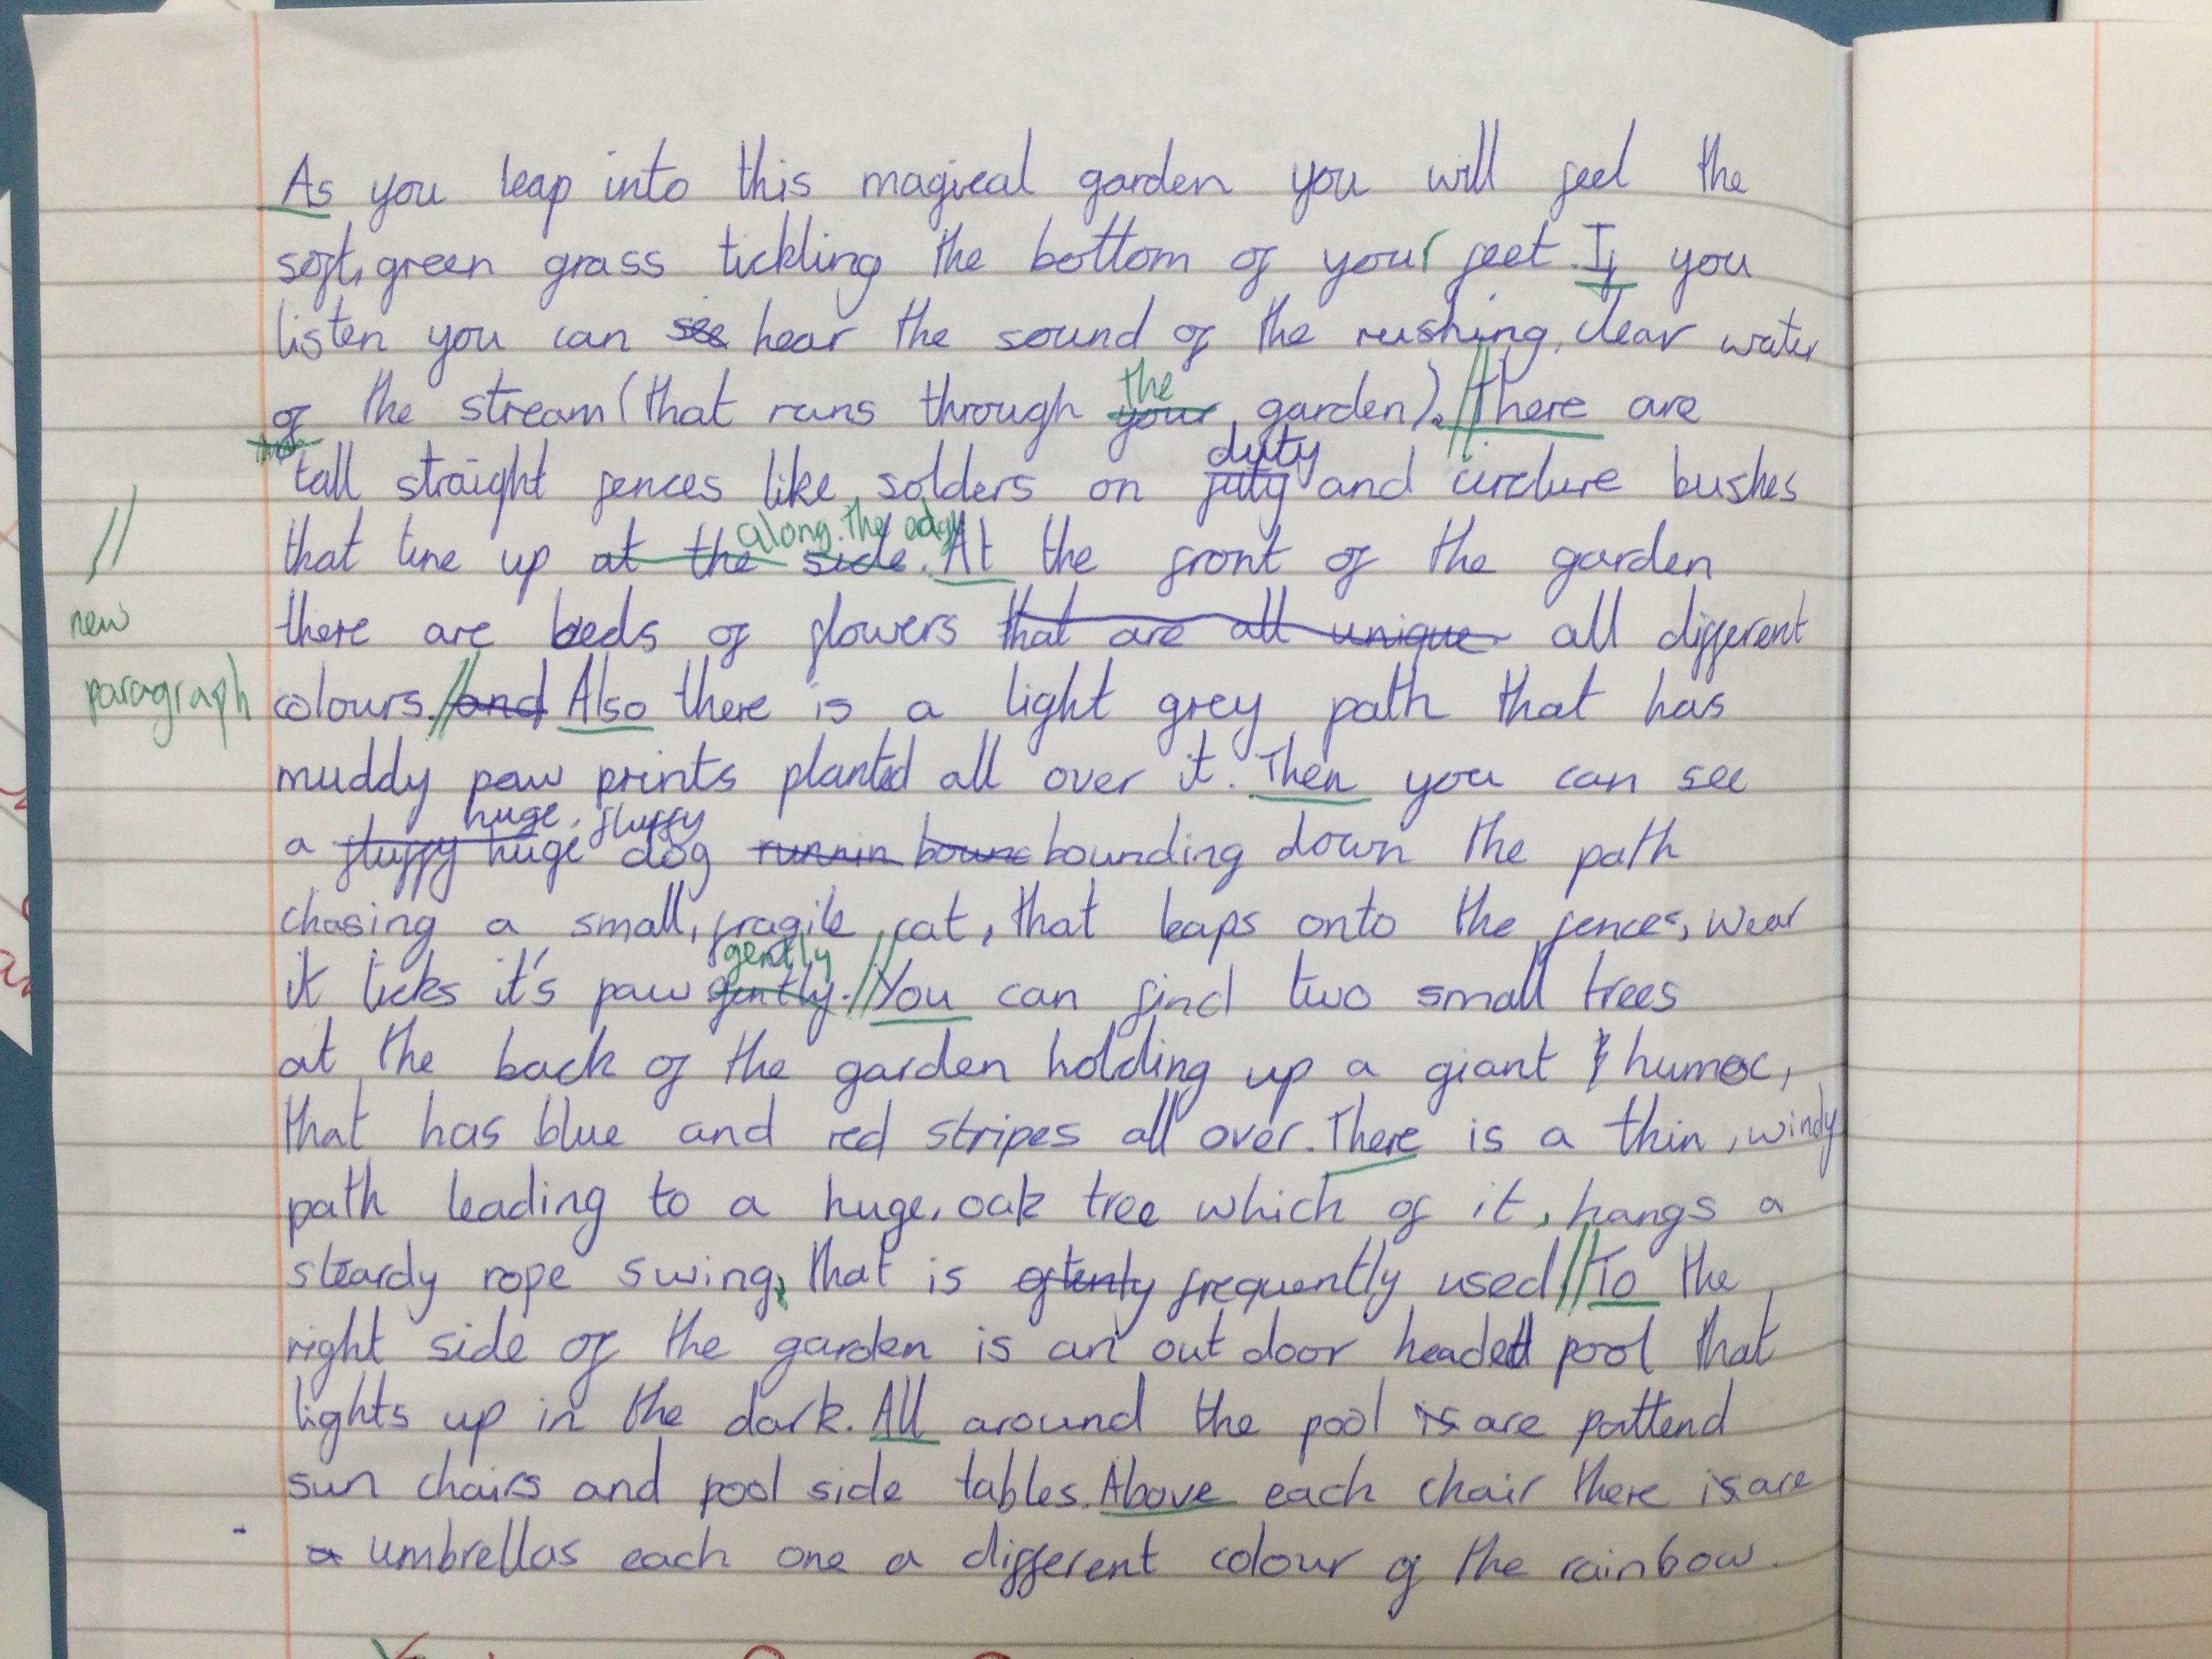 As you leap into this magical garden you will feel the
soft, green grass tickling the bottom of your feet. If you
listen you can see hear the sound of the rushing, clear water
the
of the stream (that runs through your garden). // There are
duty
tall straight fences like solders on juty and circlure bushes
along the edge
that line up at the side. At the front of the garden
//
new
there are beds of flowers that are all unique all different
paragraph
colours. // and Also there is a light grey path that has
muddy paw prints planted all over it. Then you can see
huge, fluffy
a fluffy huge dog runnin bounc bounding down the path
chasing a small, fragile, cat, that leaps onto the fences, wear
gently
it licks it's paw gently. // You can find two small trees
at the back of the garden holding up a giant humoc,
that has blue and red stripes all over. There is a thin, windy
path leading to a huge, oak tree which of it, hangs a
steardy rope swing, that is oftenly frequently used // To the
right side of the garden is an out door headed pool that
lights up in the dark. All around the pool is are pattend
sun chairs and pool side tables. Above each chair there is are
a umbrellas each one a different colour of the rainbow.